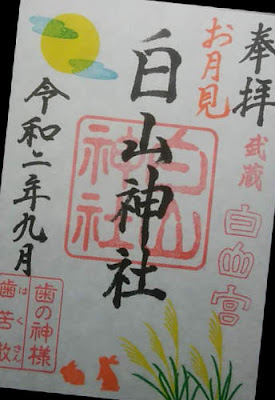 奉拝
お月見
武蔵
白山宮
白山神社
白山
神社
令和二年九月
歯の神様
はくさん
歯苦散